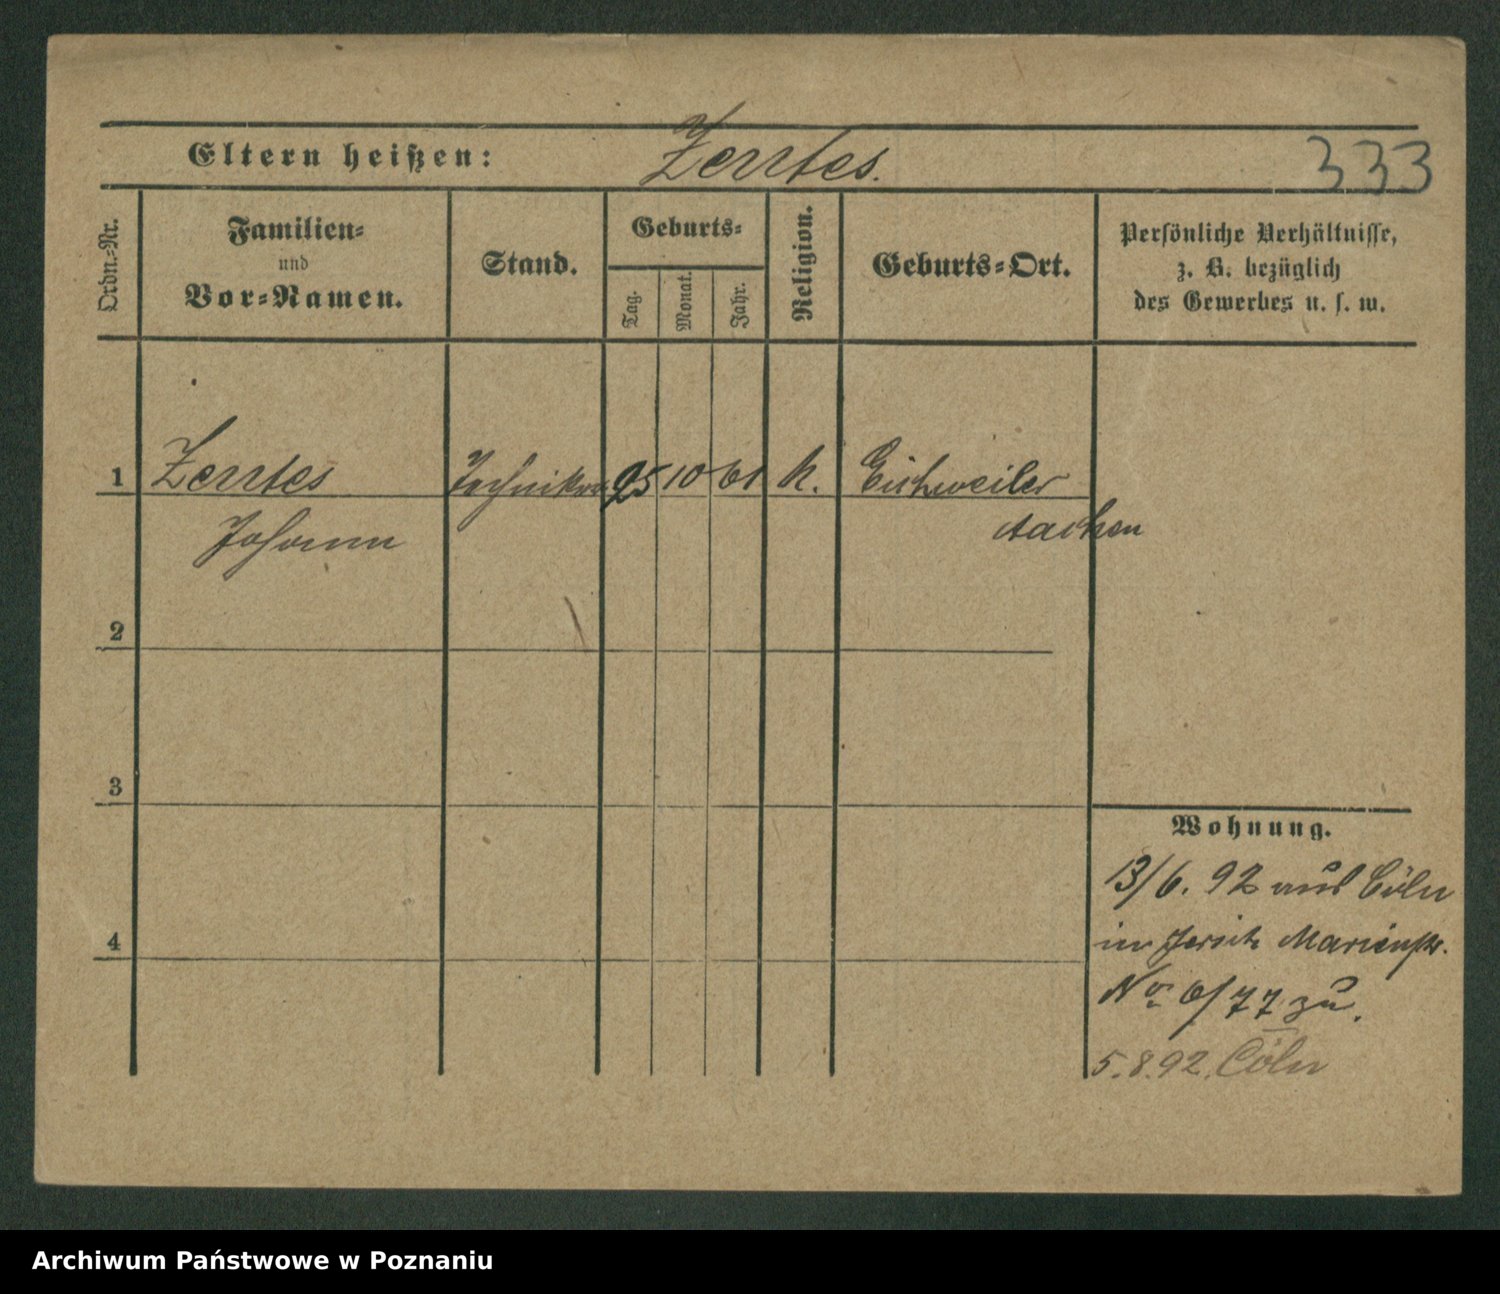 Eltern heißen: Zerrtes. 333
Ordn.-Nr.
Familien-
und
Vor-Namen.
Stand.
Geburts-
Tag.
Monat.
Jahr.
Religion.
Geburts-Ort.
Persönliche Verhältnisse,
z. B. bezüglich
des Gewerbes u. s. w.
1 Zerrtes Techniker 25 10 61 k. Eschweiler
Johann Aachen
2
3
Wohnung.
13/6. 92 aus Cöln
in Jersitz Marienstr.
4
No 6/77 zu.
5.8.92. Cöln
Archiwum Państwowe w Poznaniu